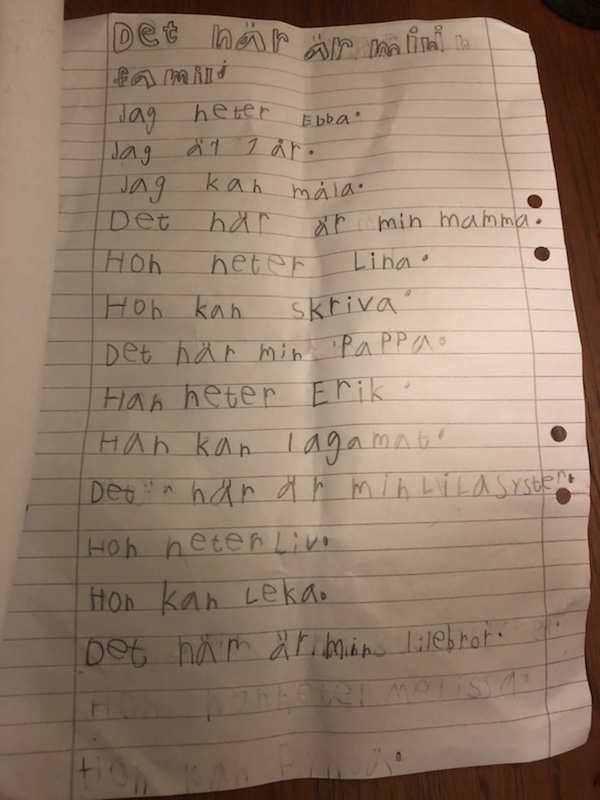 Det här är min
familj
Jag heter Ebba.
Jag är 7 år.
Jag kan måla.
Det här är min mamma.
Hon heter Lina.
Hon kan skriva.
Det här min PaPPa.
Han heter Erik.
Han kan lagamat.
Det här är min LiLasyster.
Hon heter Liv.
Hon kan Leka.
Det här är min lilebror.
Hon heter melissa.
Hon kan